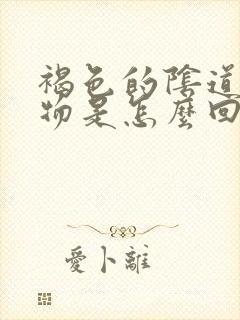 褐色的陰道
物是怎麼回
愛卜離